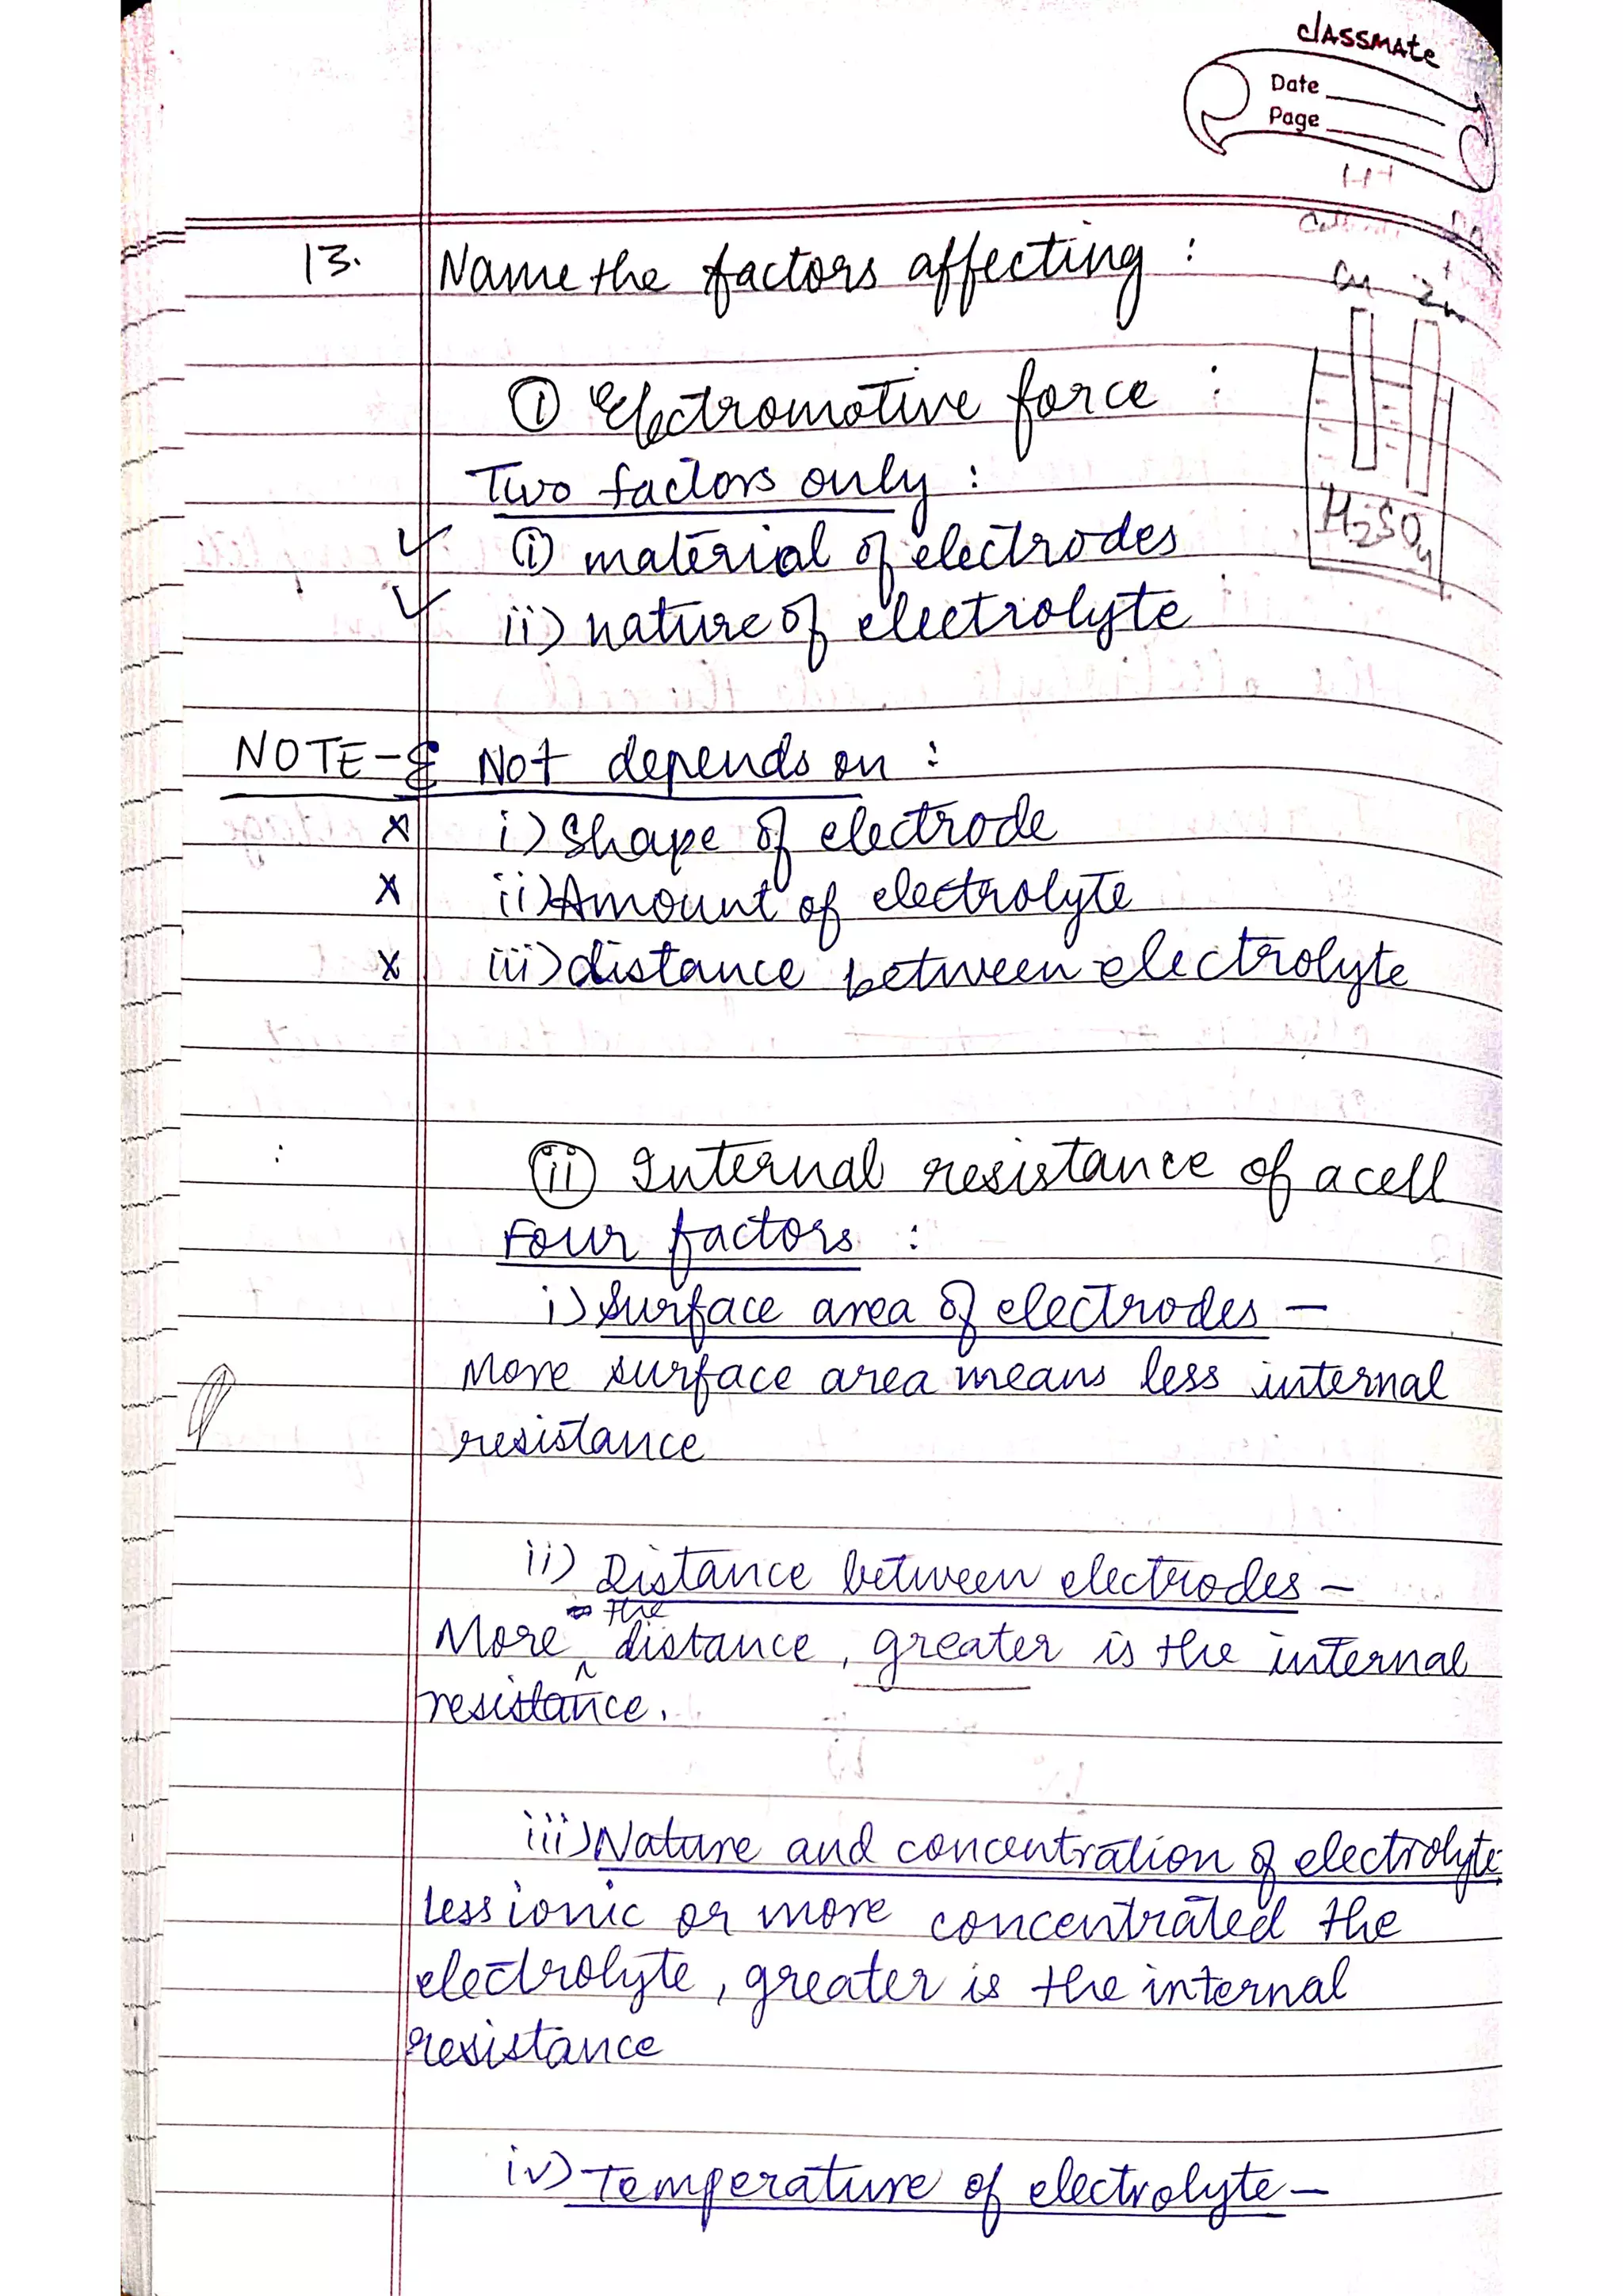 classmate
Date
Page
13. Name the factors affecting :
Cu Zn
(i) Electromotive force :
Two factors only :
(i) material of electrodes
ii) nature of electrolyte
H2SO4
NOTE- Not depends on :
x i) Shape of electrode
x ii) Amount of electrolyte
x iii) distance between electrolyte
(ii) Internal resistance of a cell
Four factors :
i) Surface area of electrodes –
More surface area means less internal
resistance
ii) Distance between electrodes –
More the distance, greater is the internal
resistance.
iii) Nature and concentration of electrolyte
less ionic or more concentrated the
electrolyte, greater is the internal
resistance
iv) Temperature of electrolyte –